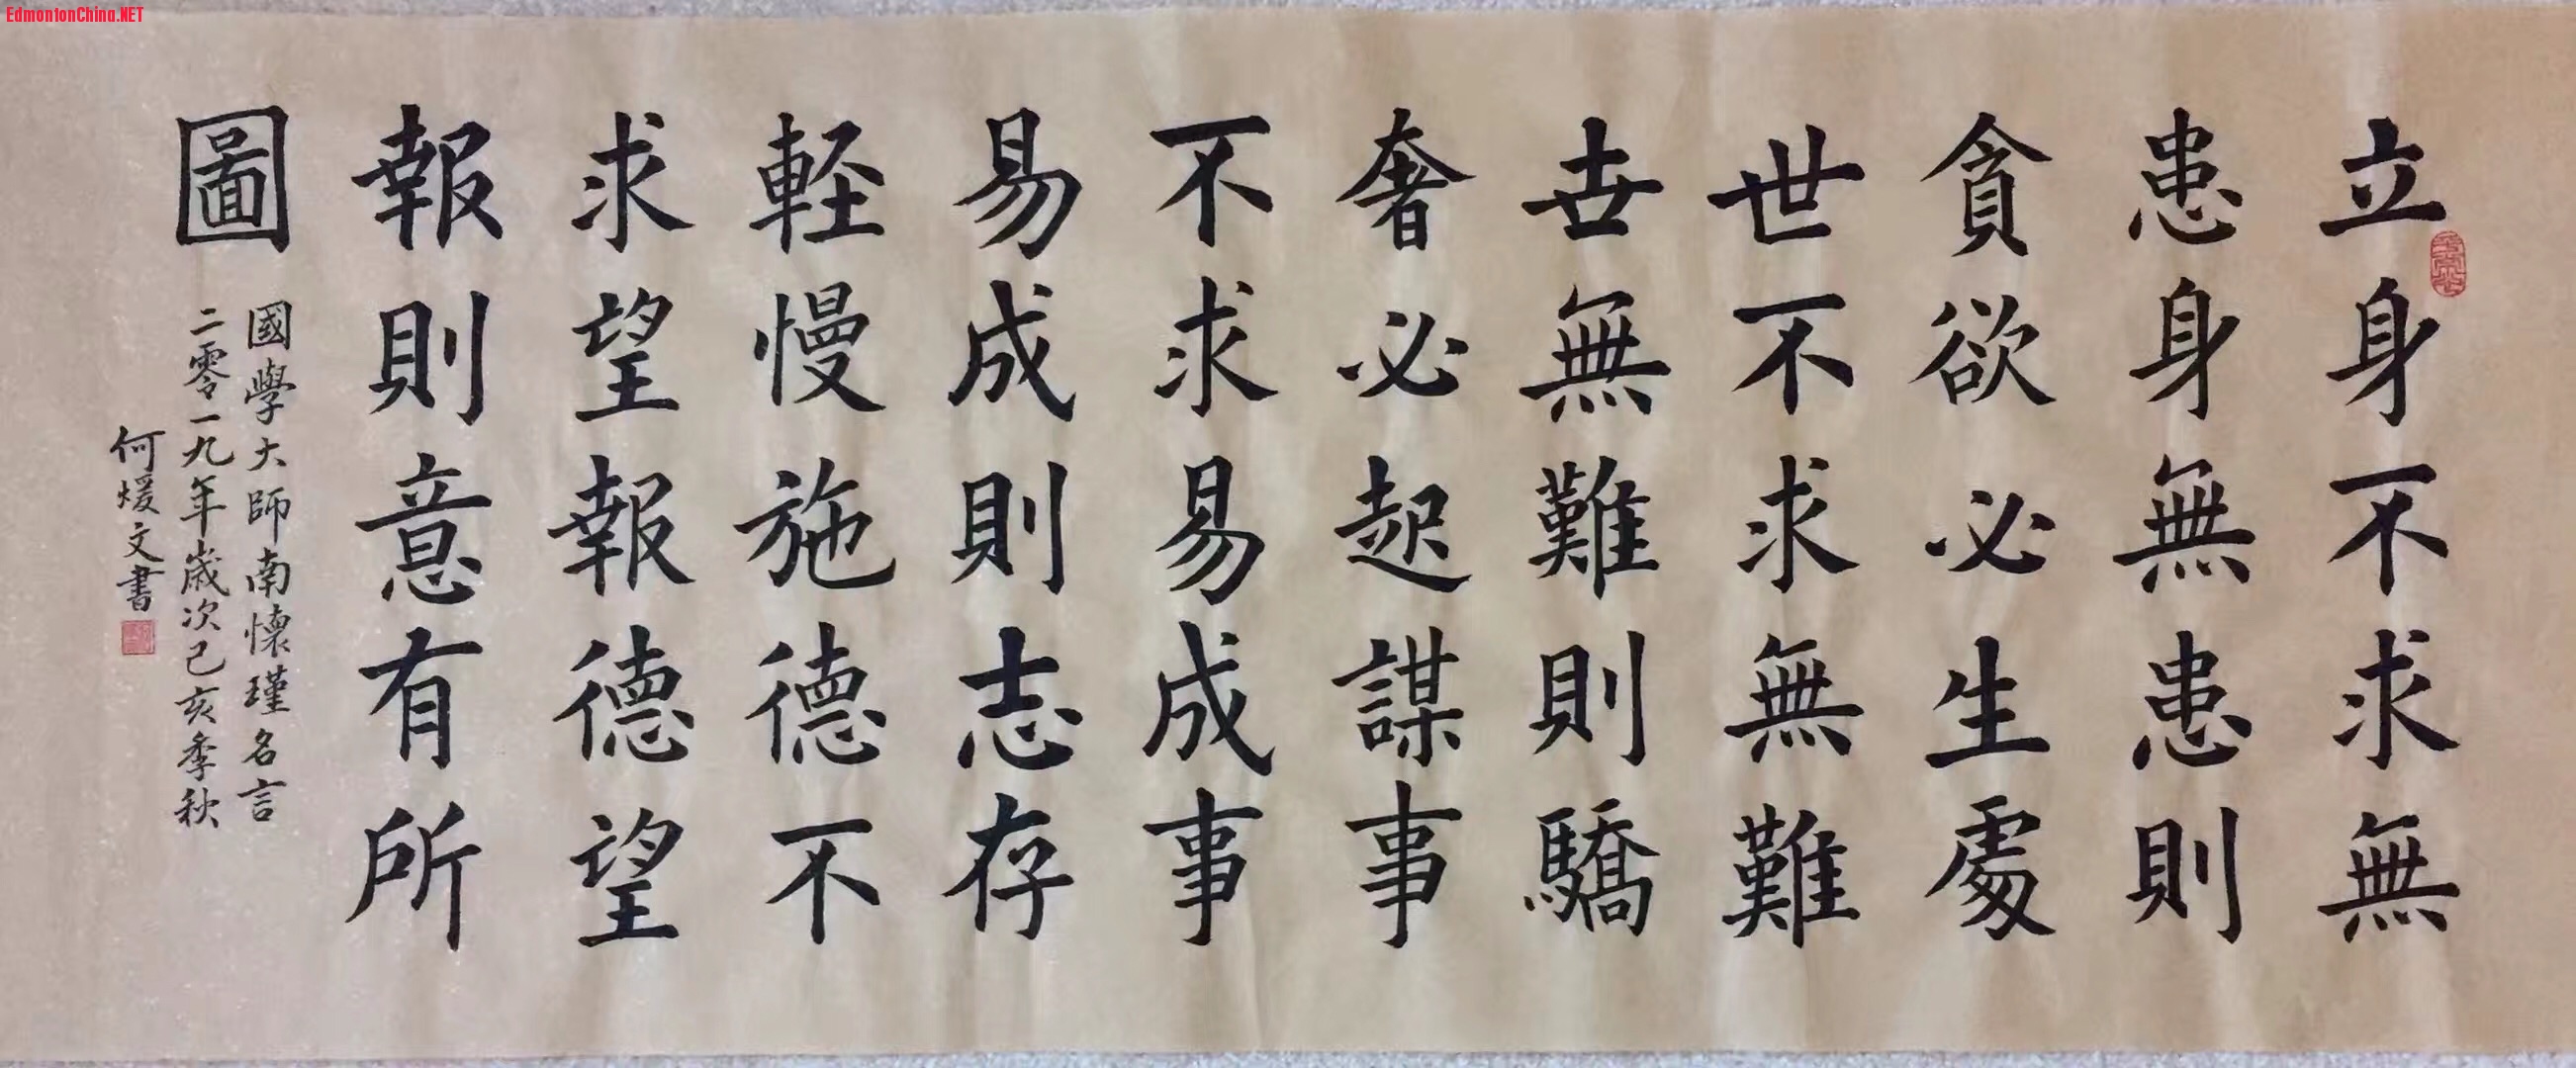 EdmontonChina.NET
立身不求無
患身無患則
貪欲必生處
世不求無難
世無難則驕
奢必起謀事
不求易成事
易成則志存
軽慢施德不
求望報德望
報則意有所
圖
國學大師南懷瑾名言
二零一九年歲次己亥季秋
何煖文書